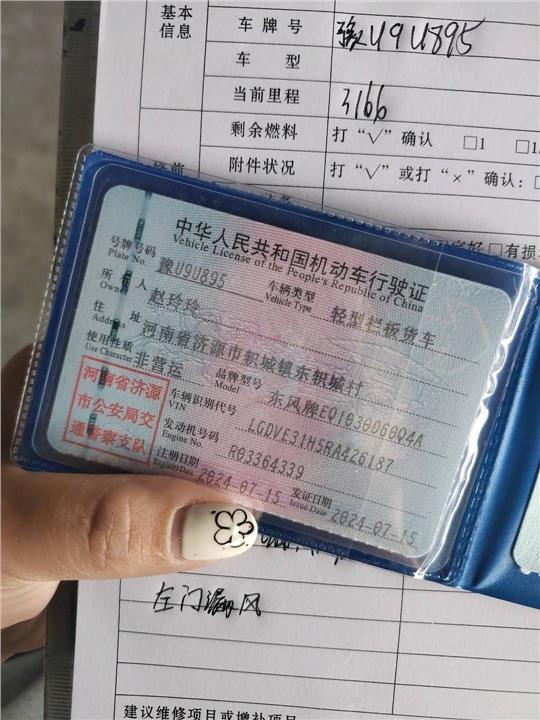 基本
信息
车牌号 豫U9U895
车型
当前里程 3166
剩余燃料 打“√”确认 □1 □1
附件状况 打“√”或打“×”确认：□
□有损
中华人民共和国机动车行驶证
Vehicle License of the People's Republic of China
号牌号码 豫U9U895 车辆类型 轻型栏板货车
Plate No. Vehicle Type
所有人 赵玲玲
Owner
住址 河南省济源市轵城镇东轵城村
Address
使用性质 非营运 品牌型号 东风牌EQ1030D60Q4A
Use Character Model
河南省济源
市公安局交
通警察支队
车辆识别代号 LGDVE31H5RA426187
VIN
发动机号码 R03364339
Engine No.
注册日期 2024-07-15 发证日期 2024-07-15
Register Date Issue Date
左门漏风
建议维修项目或增补项目